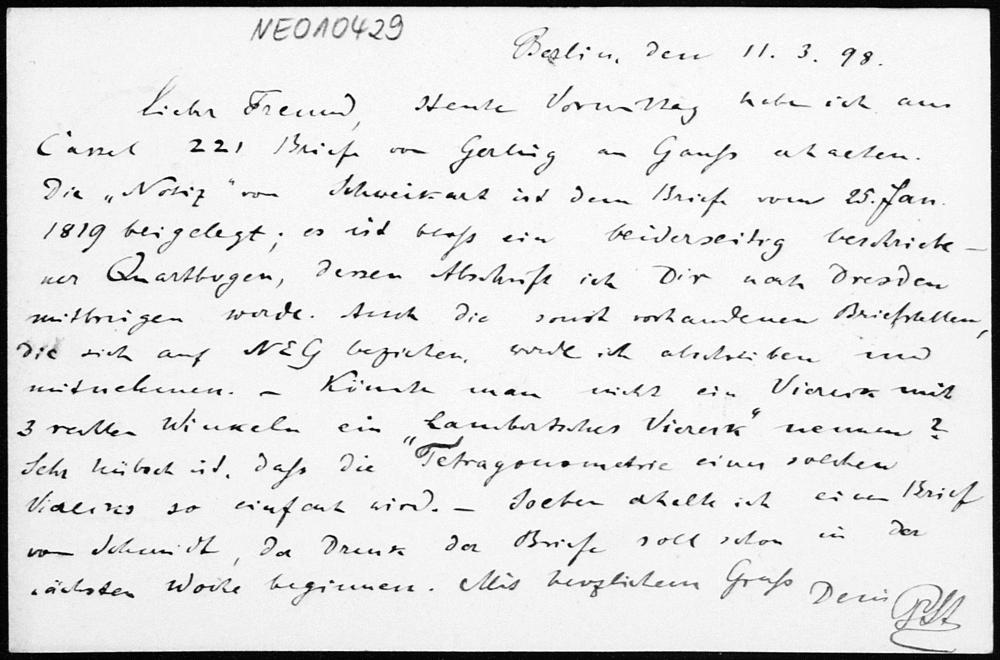 NEO10429
Berlin, den 11. 3. 98.
Lieber Freund, Heute Vormittag habe ich aus
Cassel 221 Briefe von Gerling an Gauß erhalten.
Die „Notiz" von Schweikart ist dem Briefe vom 25. Jan.
1819 beigelegt; es ist bloß ein beiderseitig beschriebe-
ner Quartbogen, dessen Abschrift ich Dir nach Dresden
mitbringen werde. Auch die sonst vorhandenen Briefstellen,
die sich auf NEG beziehen, werde ich abschreiben und
mitnehmen. – Könnte man nicht ein Viereck mit
3 rechten Winkeln ein „Lambertsches Viereck" nennen?
Sehr hübsch ist, daß die Tetragonometrie eines solchen
Vierecks so einfach wird. – Soeben erhalte ich einen Brief
von Schmidt, der Druck der Briefe soll schon in der
nächsten Woche beginnen. Mit herzlichem Gruß
Dein PSt